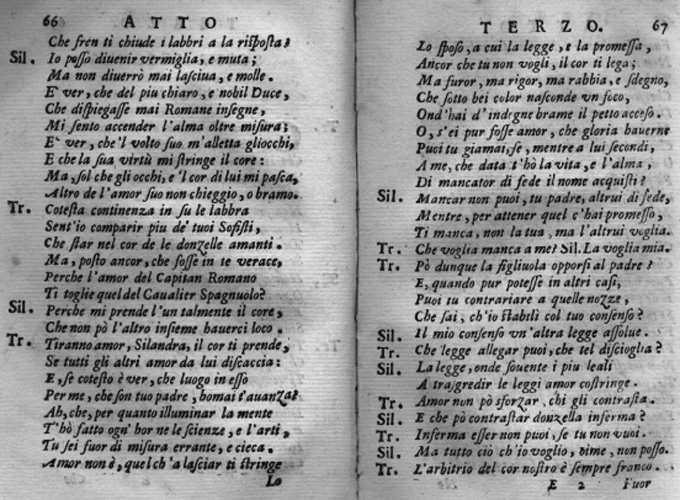 66 ATTO
Che fren ti chiude i labbri a la risposta?
Sil. Io posso diuenir vermiglia, e muta;
Ma non diuerrò mai lasciua, e molle.
E' ver, che del piu chiaro, e nobil Duce,
Che dispiegasse mai Romane insegne,
Mi sento accender l'alma oltre misura;
E' ver, che'l volto suo m'alletta gliocchi,
E che la sua virtù mi stringe il core:
Ma, sol che gli occhi, e'l cor di lui mi pasca,
Altro de l'amor suo non chieggio, o bramo.
Tr. Cotesta continenza in su le labbra
Sent'io comparir piu de' tuoi Sofisti,
Che star nel cor de le donzelle amanti.
Ma, posto ancor, che fosse in te verace,
Perche l'amor del Capitan Romano
Ti toglie quel del Caualier Spagnuolo?
Sil. Perche mi prende l'un talmente il core,
Che non pò l'altro insieme hauerci loco.
Tr. Tiranno amor, Silandra, il cor ti prende,
Se tutti gli altri amor da lui discaccia:
E, se cotesto è ver, che luogo in esso
Per me, che son tuo padre, homai t'auanza?
Ah, che, per quanto illuminar la mente
T'hò fatto ogn'hor ne le scienze, e l'arti,
Tu sei fuor di misura errante, e cieca.
Amor non è, quel ch'a lasciar ti stringe
Lo
TERZO. 67
Lo sposo, a cui la legge, e la promessa,
Ancor che tu non vogli, il cor ti lega;
Ma furor, ma rigor, ma rabbia, e sdegno,
Che sotto bei color nasconde vn foco,
Ond'hai d'indegne brame il petto acceso.
O, s'ei pur fosse amor, che gloria hauerne
Puoi tu giamai, se, mentre a lui secondi,
A me, che data t'hò la vita, e l'alma,
Di mancator di fede il nome acquisti?
Sil. Mancar non puoi, tu padre, altrui di fede,
Mentre, per attener quel c'hai promesso,
Ti manca, non la tua, ma l'altrui voglia.
Tr. Che voglia manca a me? Sil. La voglia mia.
Tr. Pò dunque la figliuola opporsi al padre?
E, quando pur potesse in altri casi,
Puoi tu contrariare a quelle nozze,
Che sai, ch'io stabilì col tuo consenso?
Sil. Il mio consenso vn'altra legge assolue.
Tr. Che legge allegar puoi, che tel discioglia?
Sil. La legge, onde souente i piu leali
A trasgredir le leggi amor costringe.
Tr. Amor non pò sforzar, chi gli contrasta.
Sil. E che pò contrastar donzella inferma?
Tr. Inferma esser non puoi, se tu non vuoi.
Sil. Ma tutto ciò ch'io voglio, oime, non posso.
Tr. L'arbitrio del cor nostro è sempre franco.
E 2 Fuor